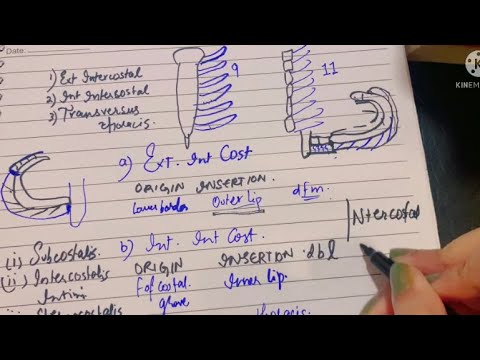 Date:
1) Ext Intercostal
2) Int Intercostal
3) Transversus
thoracis.
9
11
K
KINEM
a) Ext. Int Cost
ORIGIN INSERTION.
Lower border Outer Lip dfm.
(i) Subcostalis b) Int. Int Cost.
(ii) Intercostalis ORIGIN INSERTION. dbl
Intimi Inner lip.
Intercostal
thoracis.